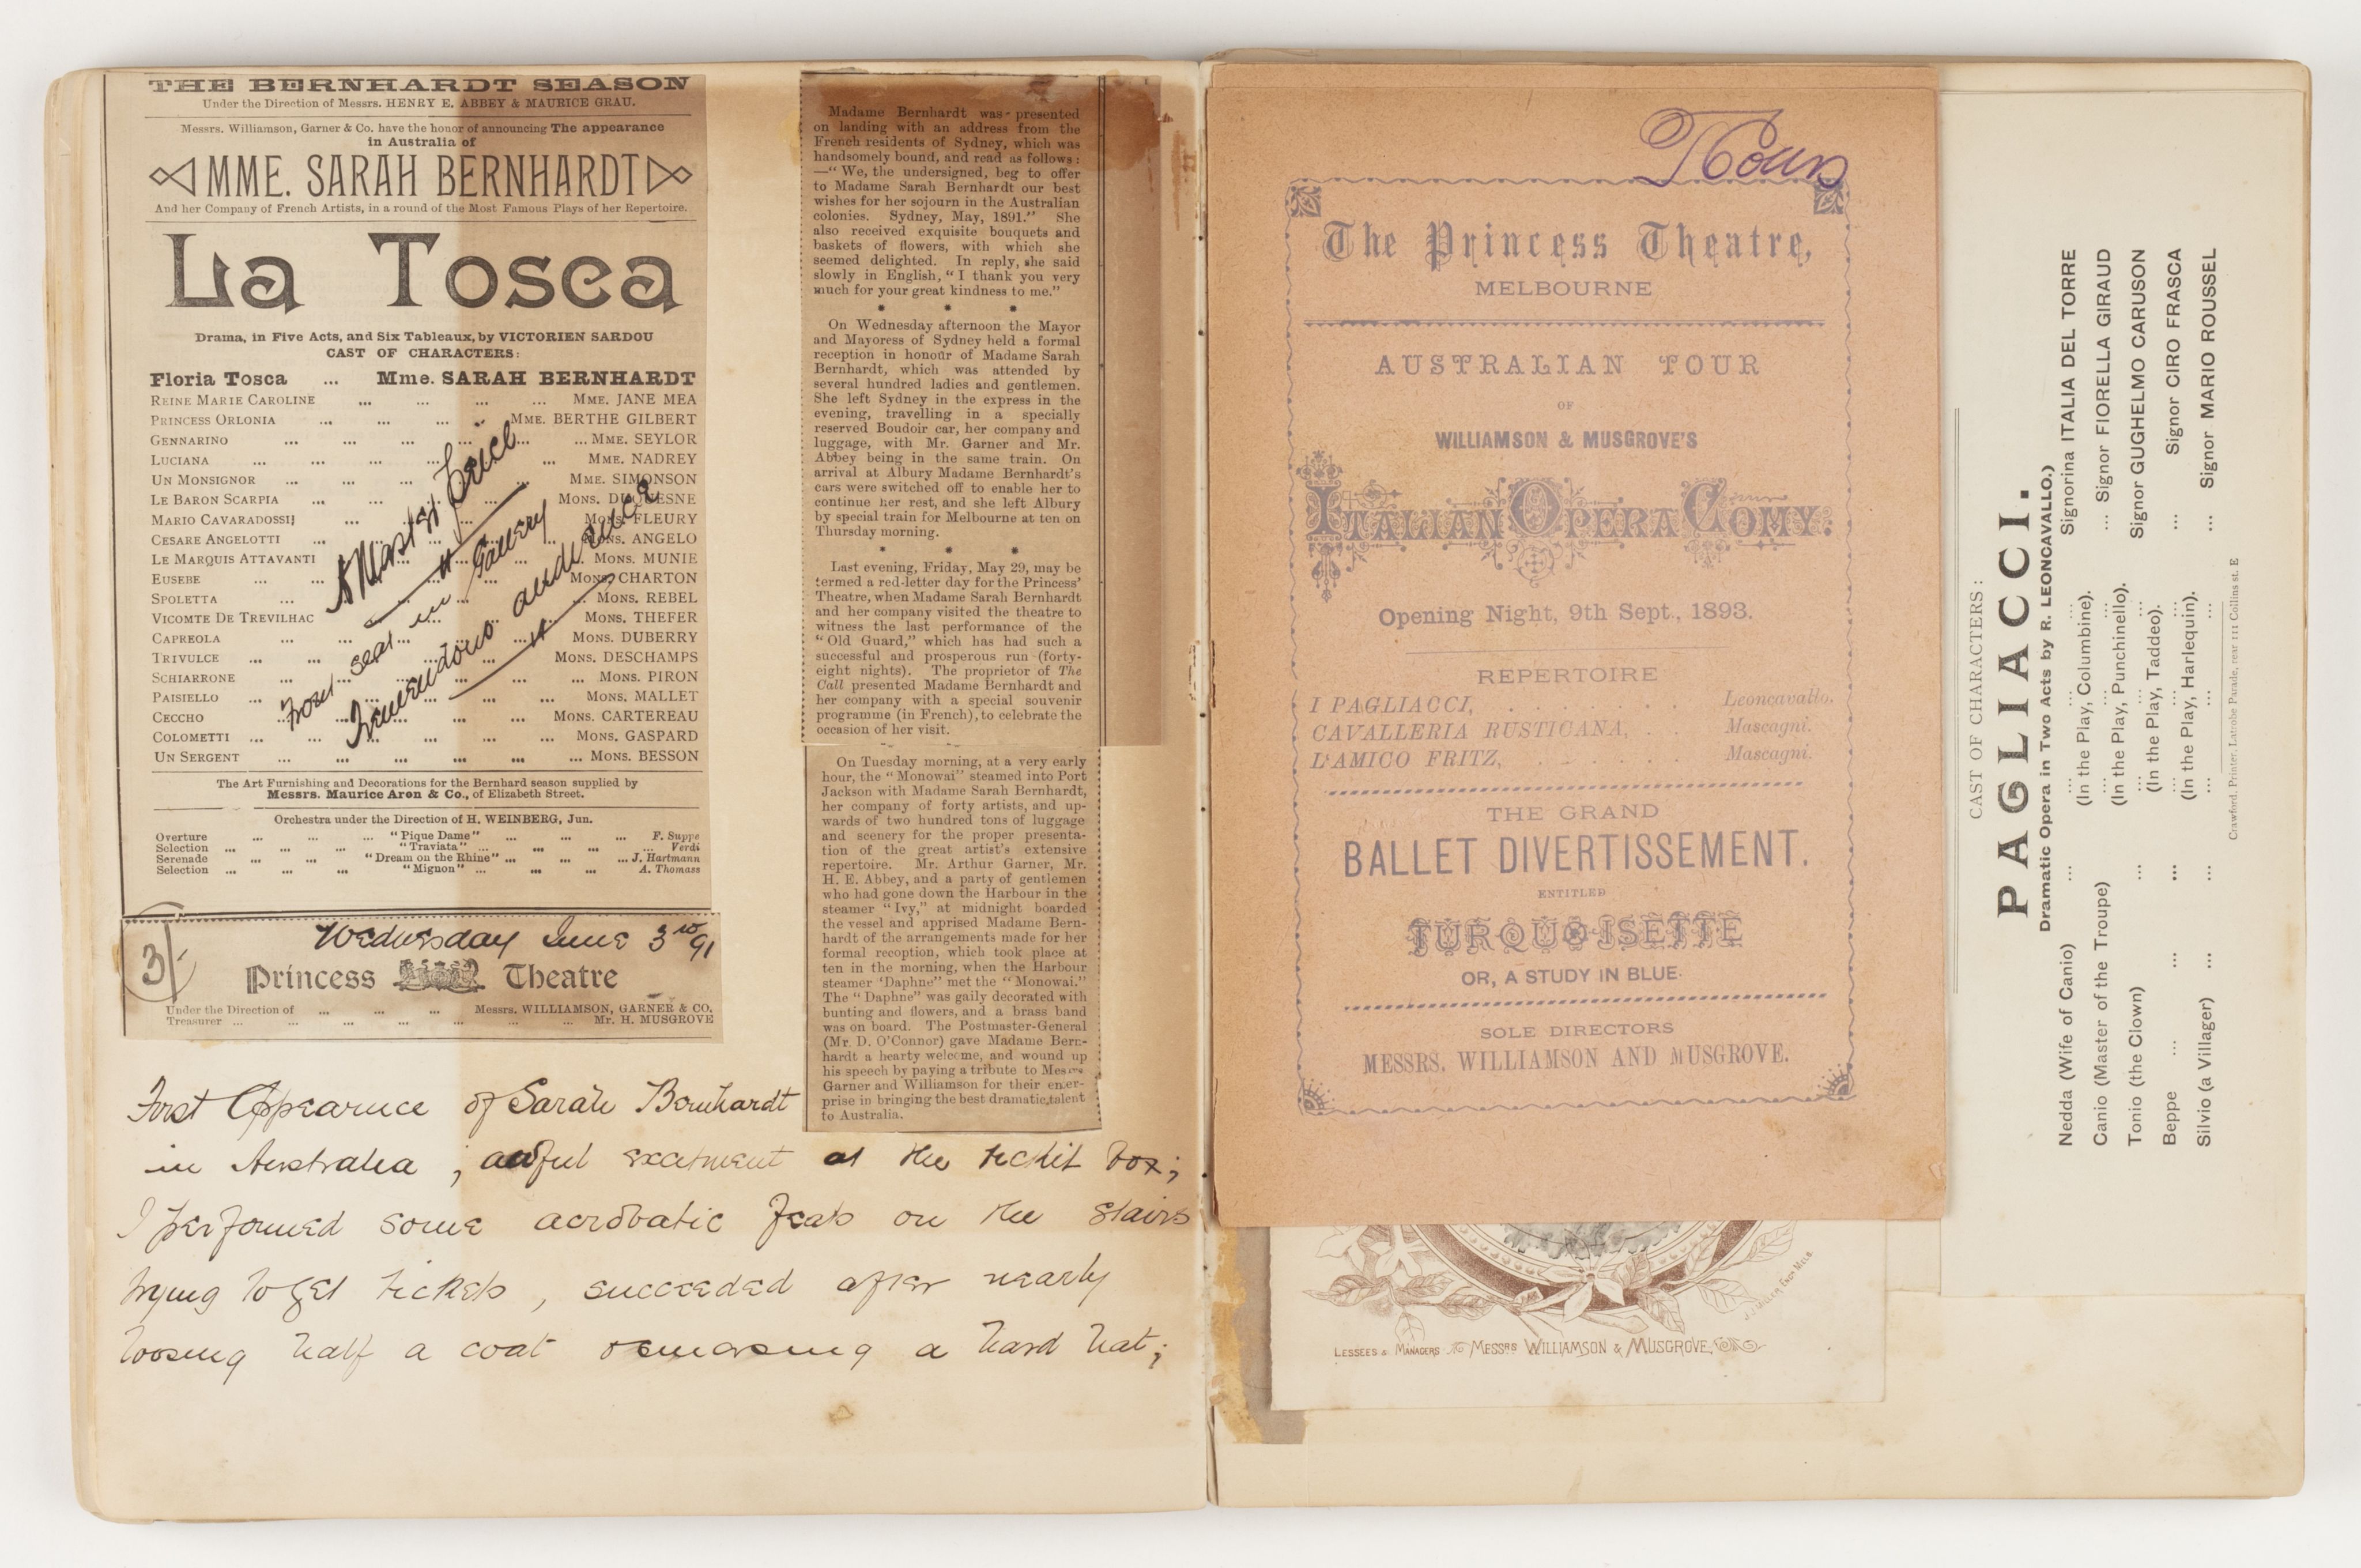 THE BERNHARDT SEASON
Under the Direction of Messrs. HENRY E. ABBEY & MAURICE GRAU.
Messrs. Williamson, Garner & Co. have the honor of announcing The appearance
in Australia of
MME. SARAH BERNHARDT
And her Company of French Artists, in a round of the Most Famous Plays of her Repertoire.
La Tosca
Drama, in Five Acts, and Six Tableaux, by VICTORIEN SARDOU
CAST OF CHARACTERS:
Floria Tosca ... Mme. SARAH BERNHARDT
REINE MARIE CAROLINE ... ... ... ... MME. JANE MEA
PRINCESS ORLONIA ... ... ... MME. BERTHE GILBERT
GENNARINO ... ... ... ... ... MME. SEYLOR
LUCIANA ... ... ... ... ... MME. NADREY
UN MONSIGNOR ... ... ... ... MME. SIMONSON
LE BARON SCARPIA ... ... ... ... MONS. DUQUESNE
MARIO CAVARADOSSIJ ... ... ... MONS. FLEURY
CESARE ANGELOTTI ... ... ... ... MONS. ANGELO
LE MARQUIS ATTAVANTI ... ... ... ... MONS. MUNIE
EUSEBE ... ... ... ... MONS. CHARTON
SPOLETTA ... ... ... ... MONS. REBEL
VICOMTE DE TREVILHAC ... ... ... MONS. THEFER
CAPREOLA ... ... ... ... MONS. DUBERRY
TRIVULCE ... ... ... ... MONS. DESCHAMPS
SCHIARRONE ... ... ... ... ... MONS. PIRON
PAISIELLO ... ... ... ... ... MONS. MALLET
CECCHO ... ... ... ... MONS. CARTEREAU
COLOMETTI ... ... ... ... ... MONS. GASPARD
UN SERGENT ... ... ... ... ... MONS. BESSON
A Master Peice
Front seat in Gallery
Tremendous audience
The Art Furnishing and Decorations for the Bernhard season supplied by
Messrs. Maurice Aron & Co., of Elizabeth Street.
Orchestra under the Direction of H. WEINBERG, Jun.
Overture ... ... ... "Pique Dame" ... ... ... F. Suppe
Selection ... ... ... "Traviata" ... ... ... Verdi
Serenade ... ... "Dream on the Rhine" ... ... ... J. Hartmann
Selection ... ... ... "Mignon" ... ... ... A. Thomass
3/-
Wednesday June 3rd 91
Princess Theatre
Under the Direction of ... ... ... Messrs. WILLIAMSON, GARNER & CO.
Treasurer ... ... ... ... ... ... ... Mr. H. MUSGROVE
First Appearnce of Sarah Bernhardt
in Australia ; awful excitment at the tickit box;
I performed some acrobatic feats on the stairs
trying to get tickets, succeeded after nearly
loosing half a coat & smasing a hard hat;
Madame Bernhardt was presented
on landing with an address from the
French residents of Sydney, which was
handsomely bound, and read as follows:
—"We, the undersigned, beg to offer
to Madame Sarah Bernhardt our best
wishes for her sojourn in the Australian
colonies. Sydney, May, 1891." She
also received exquisite bouquets and
baskets of flowers, with which she
seemed delighted. In reply, she said
slowly in English, "I thank you very
much for your great kindness to me."
* * *
On Wednesday afternoon the Mayor
and Mayoress of Sydney held a formal
reception in honour of Madame Sarah
Bernhardt, which was attended by
several hundred ladies and gentlemen.
She left Sydney in the express in the
evening, travelling in a specially
reserved Boudoir car, her company and
luggage, with Mr. Garner and Mr.
Abbey being in the same train. On
arrival at Albury Madame Bernhardt's
cars were switched off to enable her to
continue her rest, and she left Albury
by special train for Melbourne at ten on
Thursday morning.
* * *
Last evening, Friday, May 29, may be
termed a red-letter day for the Princess'
Theatre, when Madame Sarah Bernhardt
and her company visited the theatre to
witness the last performance of the
"Old Guard," which has had such a
successful and prosperous run (forty-
eight nights). The proprietor of The
Call presented Madame Bernhardt and
her company with a special souvenir
programme (in French), to celebrate the
occasion of her visit.
On Tuesday morning, at a very early
hour, the "Monowai" steamed into Port
Jackson with Madame Sarah Bernhardt,
her company of forty artists, and up-
wards of two hundred tons of luggage
and scenery for the proper presenta-
tion of the great artist's extensive
repertoire. Mr. Arthur Garner, Mr.
H. E. Abbey, and a party of gentlemen
who had gone down the Harbour in the
steamer "Ivy," at midnight boarded
the vessel and apprised Madame Bern-
hardt of the arrangements made for her
formal reception, which took place at
ten in the morning, when the Harbour
steamer 'Daphne" met the "Monowai."
The "Daphne" was gaily decorated with
bunting and flowers, and a brass band
was on board. The Postmaster-General
(Mr. D. O'Connor) gave Madame Bern-
hardt a hearty welcome, and wound up
his speech by paying a tribute to Messrs
Garner and Williamson for their enter-
prise in bringing the best dramatic talent
to Australia.
The Princess Theatre,
MELBOURNE
AUSTRALIAN TOUR
OF
WILLIAMSON & MUSGROVE'S
ITALIAN OPERA COMY.
Opening Night, 9th Sept., 1893.
REPERTOIRE
I PAGLIACCI, . . . . . . . Leoncavallo.
CAVALLERIA RUSTICANA, . . Mascagni.
L'AMICO FRITZ, . . . . . . Mascagni.
THE GRAND
BALLET DIVERTISSEMENT.
ENTITLED
TURQUOISETTE
OR, A STUDY IN BLUE.
SOLE DIRECTORS
MESSRS. WILLIAMSON AND MUSGROVE.
J. J. MILLER ENGR MELB
LESSEES & MANAGERS MESSRS WILLIAMSON & MUSGROVE.
CAST OF CHARACTERS:
PAGLIACCI.
Dramatic Opera in Two Acts by R. LEONCAVALLO.)
Nedda (Wife of Canio) ... ... Signorina ITALIA DEL TORRE
(In the Play, Columbine).
Canio (Master of the Troupe) ... ... Signor FIORELLA GIRAUD
(In the Play, Punchinello).
Tonio (the Clown) ... ... Signor GUGHELMO CARUSON
(In the Play, Taddeo).
Beppe ... ... ... ... ... Signor CIRO FRASCA
(In the Play, Harlequin).
Silvio (a Villager) ... ... ... ... ... Signor MARIO ROUSSEL
Crawford, Printer, Latrobe Parade, rear 111 Collins st. E